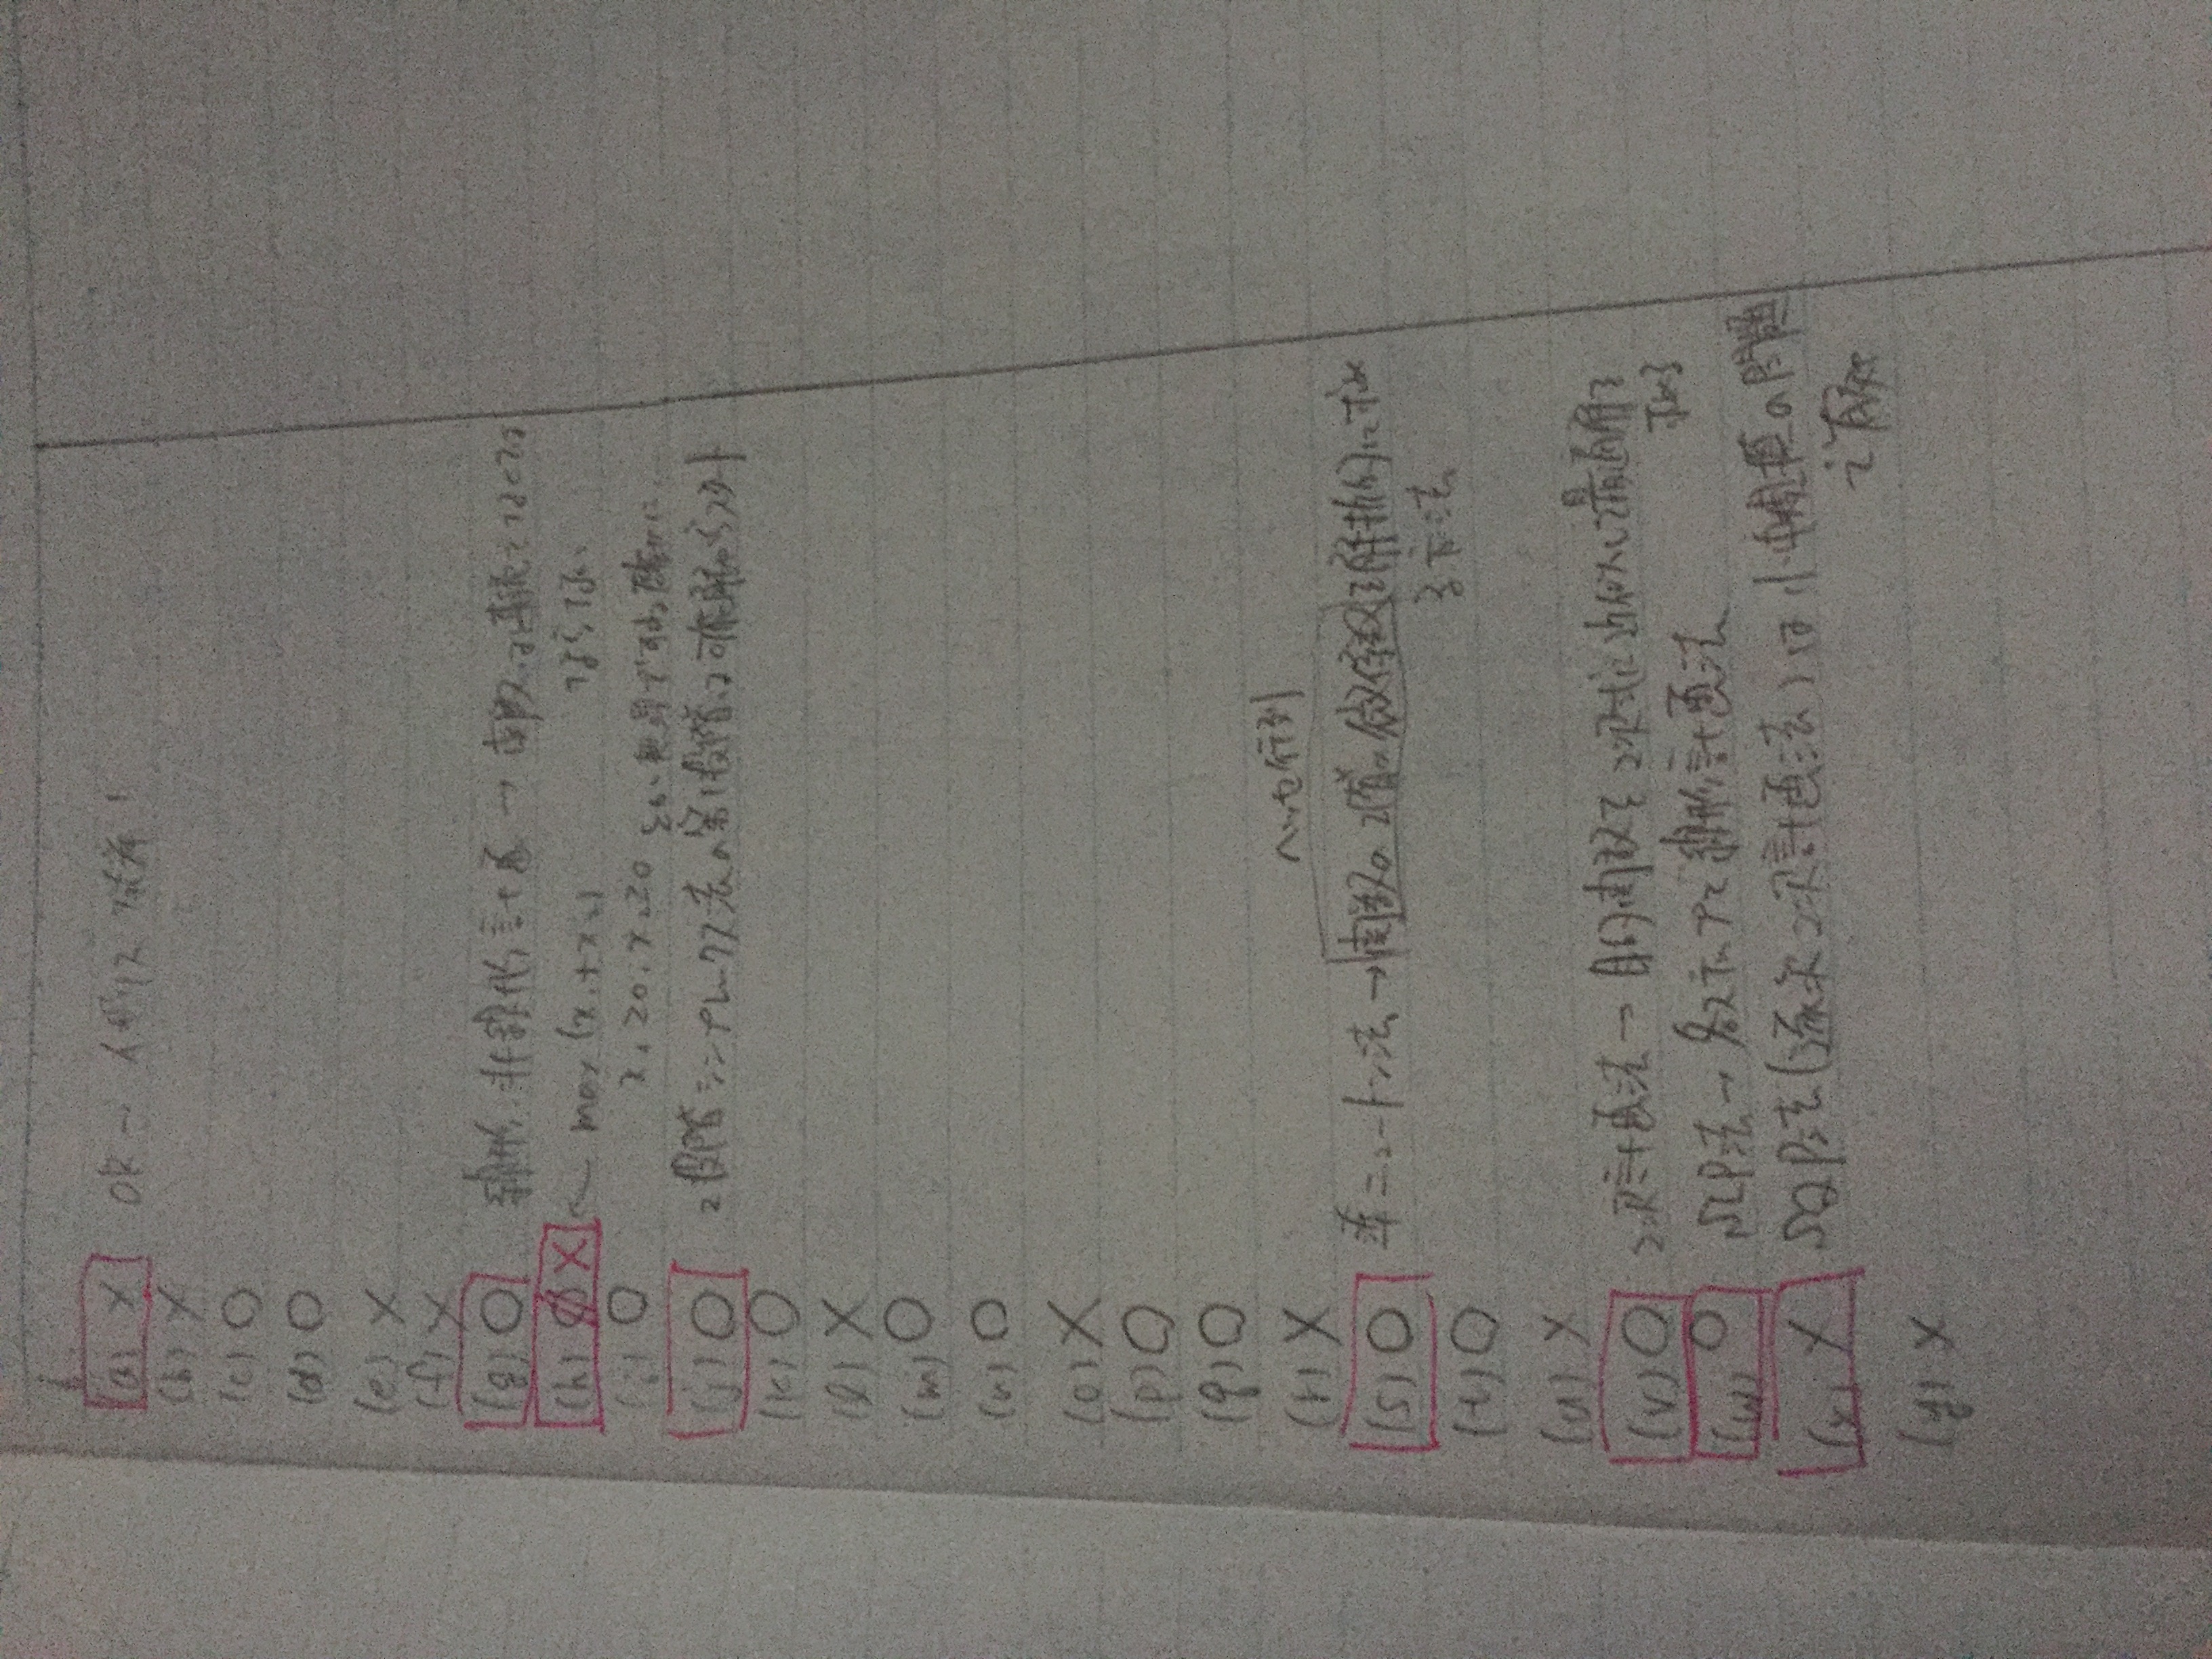 1.
(a) × OR → イギリス
(b) ×
(c) ○
(d) ○
(e) ×
(f) ×
(g) ○ 線形, 非線形計画 → 関数は連続でなくては
ならない
(h) ○ × ← max (x₁+x₂)
(i) ○ x₁≧0, x₂≧0
(j) ○ 2段階シンプレックス法の第1段階は可能解からスタート
(k) ○
(l) ×
(m) ○
(n) ○
(o) ×
(p) ○
(q) ○
(r) ×
ヘッセ行列
(s) ○ 準ニュートン法 → 関数の2階の微係数を解析的に求め
る方法
(t) ○
(u) ×
(v) ○ 2次計画法 → 目的関数を2次式に近似して最適解を
求める
(w) ○ SLP法 → 各ステップで線形計画法
(x) × SQP法(逐次2次計画法)は小中規模の問題
で有効
(y) ×